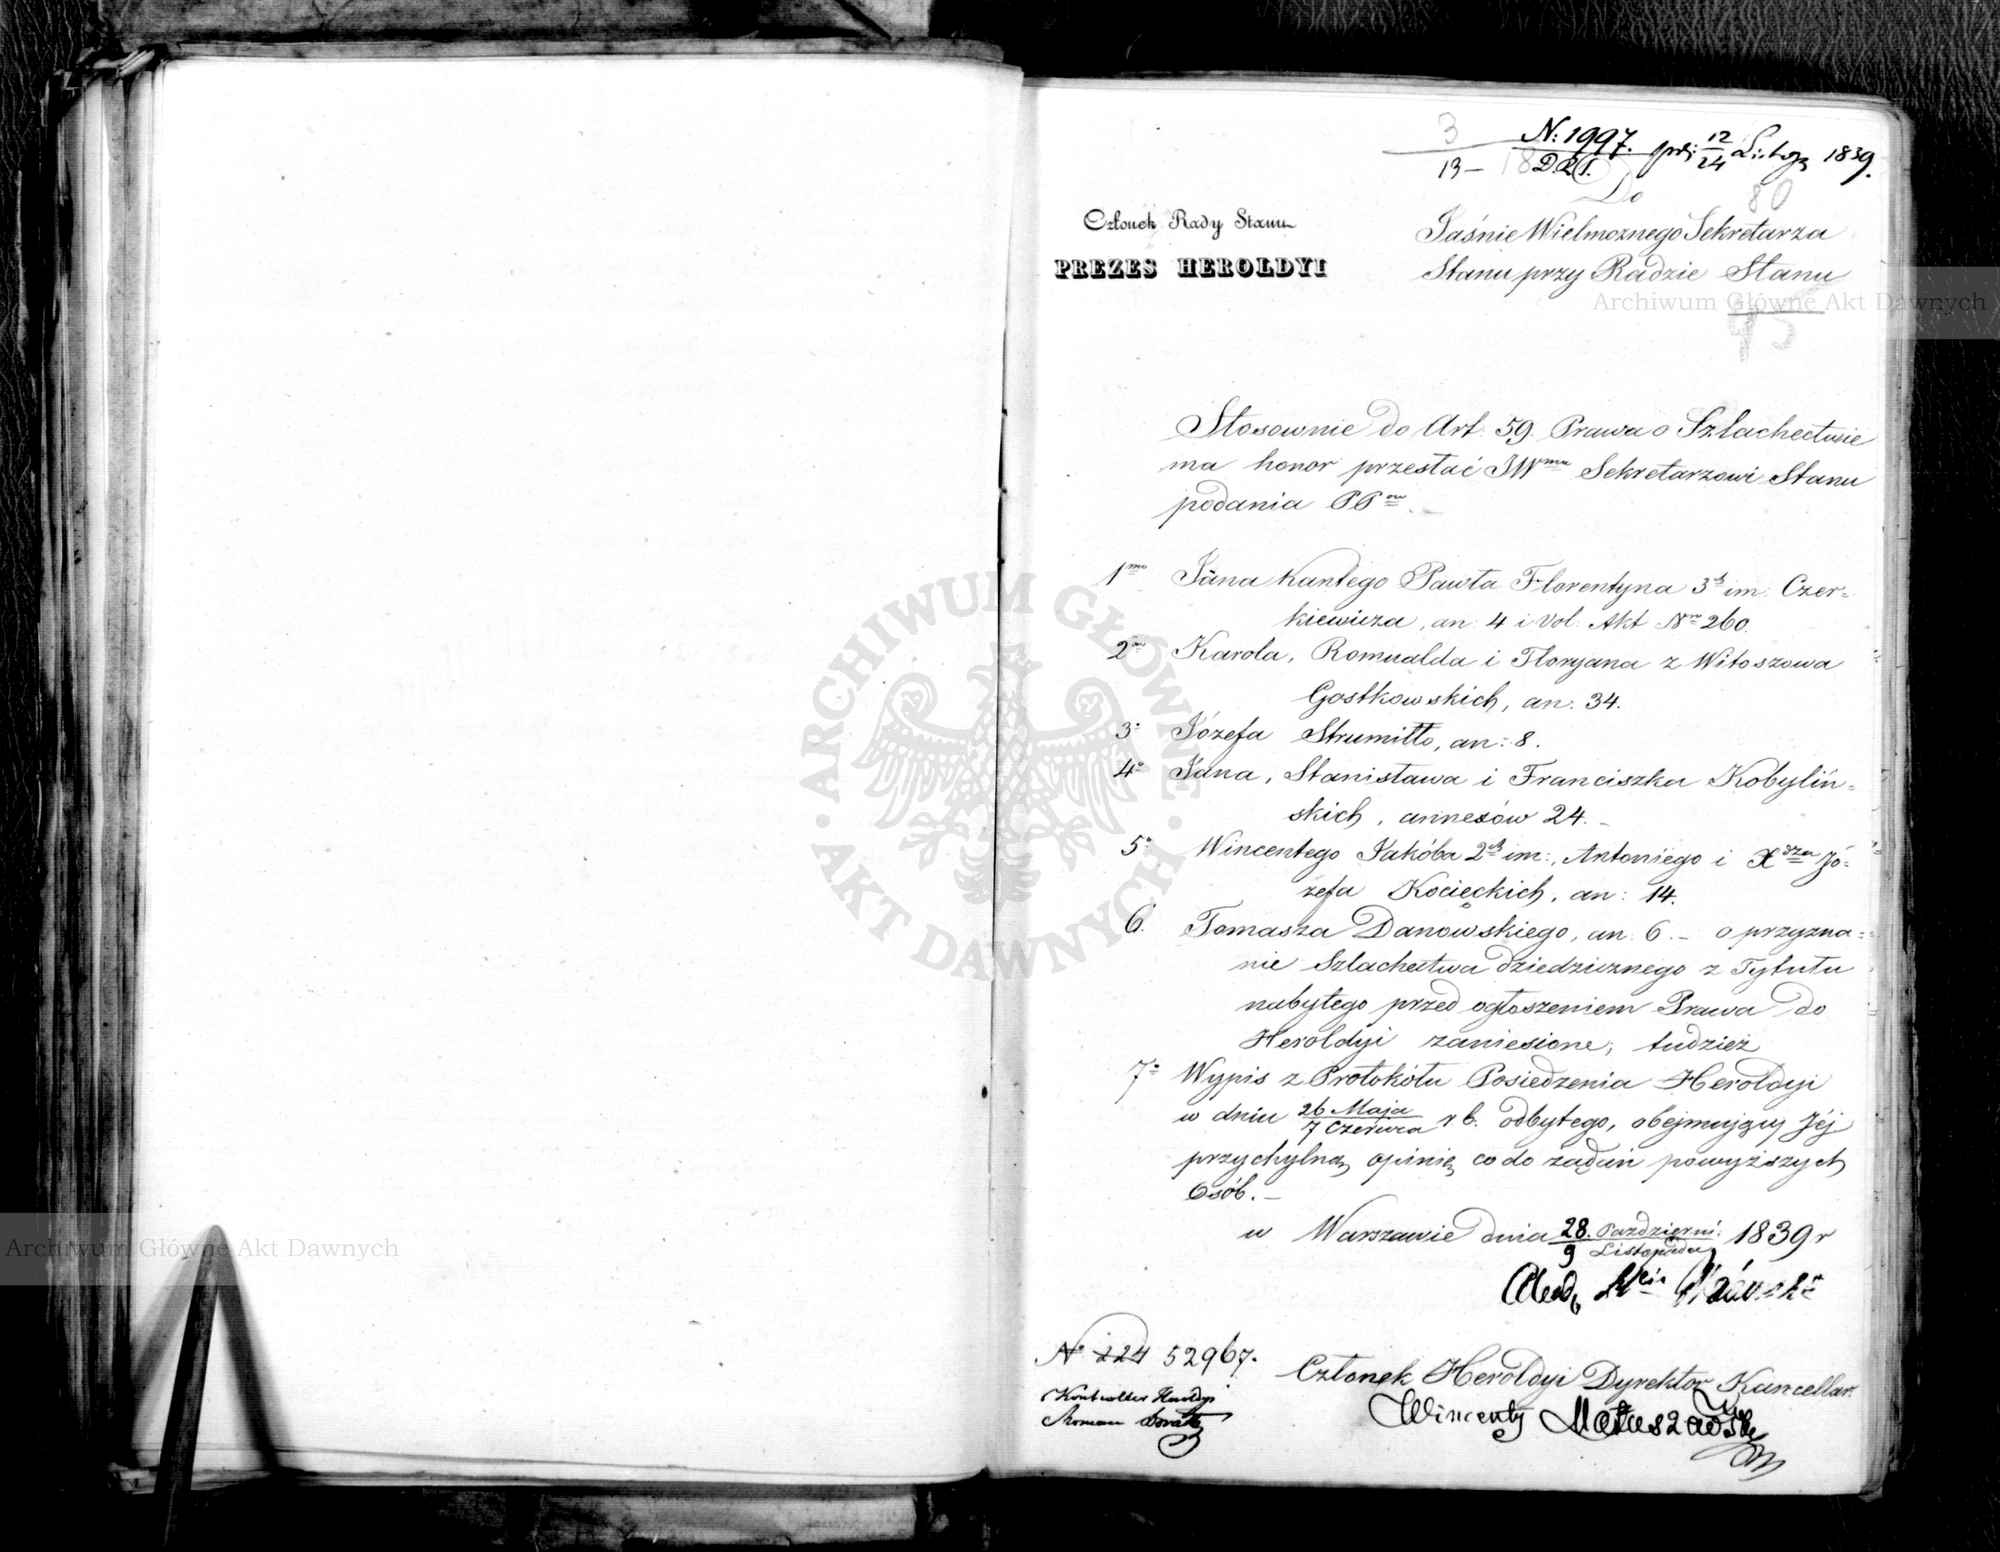 3
N: 1997. prz: 12/24 Listop 1839.
13 – 18 D.P.S.
Do
80
Członek Rady Stanu
PREZES HEROLDYI
Jaśnie Wielmożnego Sekretarza
Stanu przy Radzie Stanu
95
Stosownie do Art. 59. Prawa o Szlachectwie
ma honor przesłać JWmu Sekretarzowi Stanu
podania PPow. –
1mo Jana Kantego Pawła Florentyna 3ch im. Czer=
kiewicza, an: 4 i Vol: Akt Nro 260.
2do Karola, Romualda i Floryana z Witoszowa
Gostkowskich, an. 34.
3o Józefa Strumiłło, an: 8.
4o Jana, Stanisława i Franciszka Kobyliń=
skich, annexów 24. –
5o Wincentego Jakóba 2ch im:, Antoniego i Xdza Jó=
zefa Kocięckich, an: 14.
6. Tomasza Danowskiego, an. 6. – o przyzna=
nie Szlachectwa dziedzicznego z Tytułu
nabytego przed ogłoszeniem Prawa do
Heroldyi zaniesione, tudzież
7o Wypis z Protokółu Posiedzenia Heroldyi
w dniu 26 Maja/7 Czerwca r b. odbytego, obejmujący Jéj
przychylną opinię co do żądań powyższych
Osób. –
w Warszawie dnia 28. Październi:/9 Listopada 1839 r
No 224 52967.
Członek Heroldyi Dyrektor Kancellar:
Kontroller Heroldyi
Wincenty Matuszewski
Roman
Archiwum Główne Akt Dawnych
Archiwum Główne Akt Dawnych
ARCHIWUM GŁÓWNE · AKT DAWNYCH ·